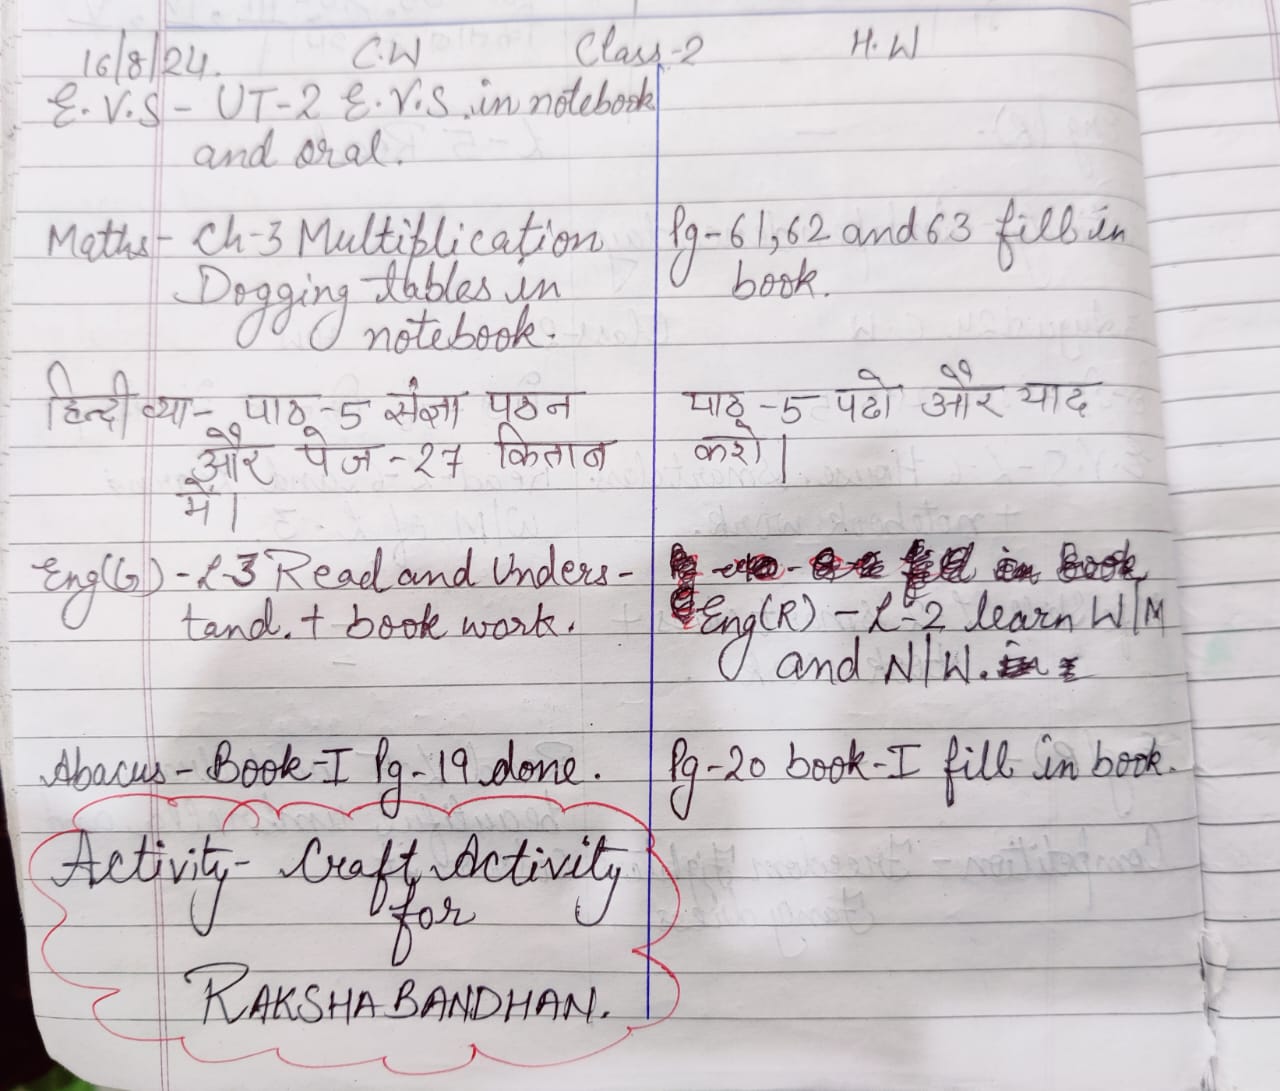 16/8/24. C.W Class-2 H.W
E.V.S - UT-2 E.V.S. in notebook
and oral.
Maths - Ch-3 Multiplication
Dogging tables in
notebook.
Pg-61,62 and 63 fill in
book.
हिन्दी व्या- पाठ-5 संज्ञा पठन
और पेज-27 किताब
में।
पाठ-5 पढो और याद
करो।
Eng(G) - L-3 Read and Unders-
tand. + book work.
in Book
Eng(R) - L-2 learn W/M
and N/W.
Abacus - Book-I Pg-19 done.
Pg-20 book-I fill in book.
Activity - Craft Activity
for
RAKSHABANDHAN.